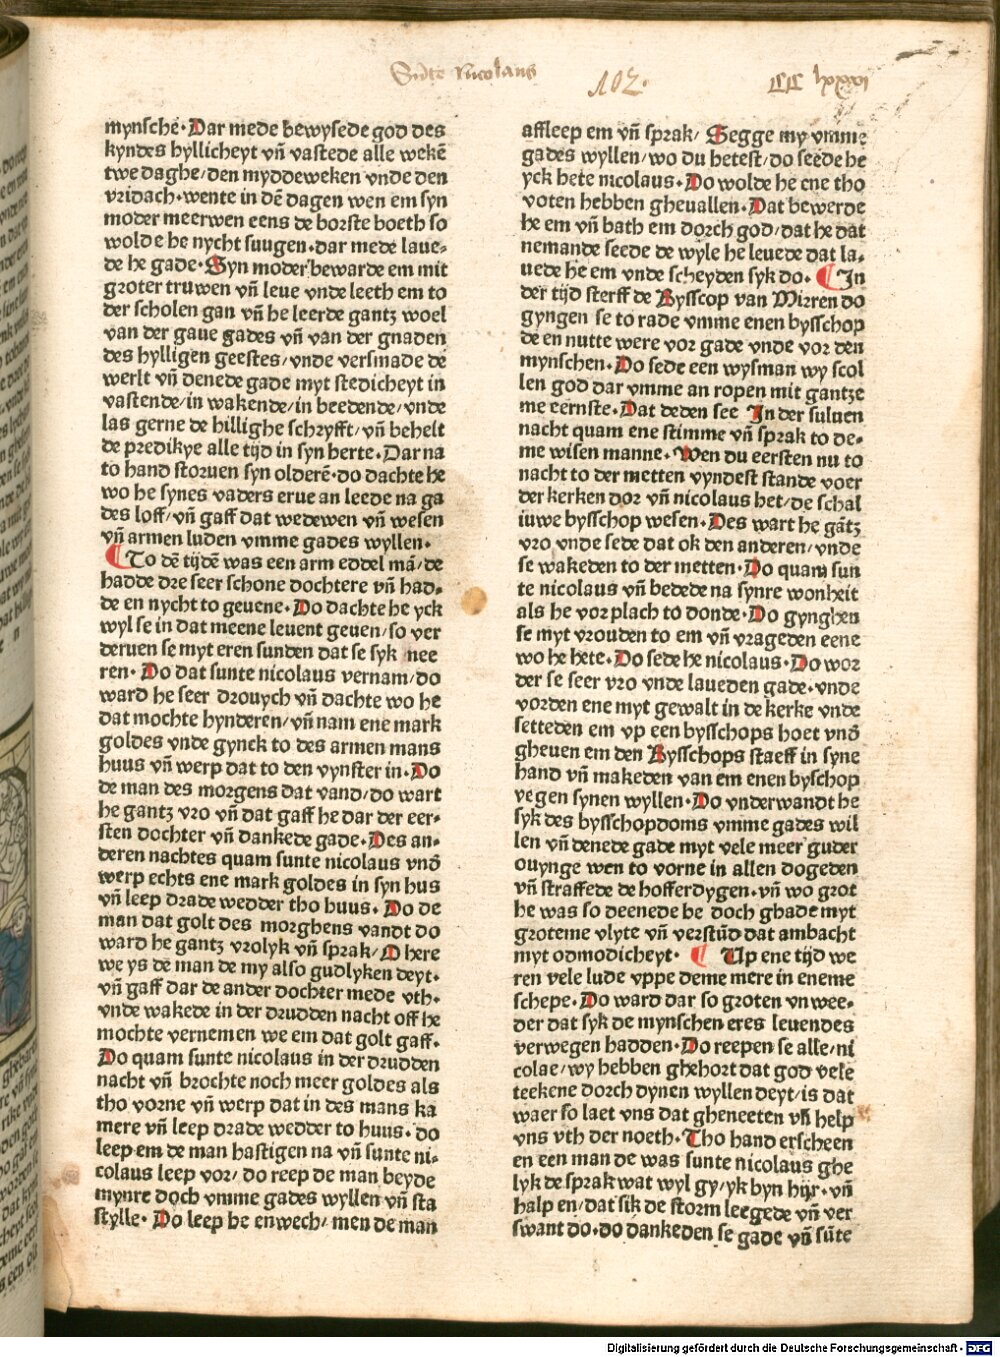 Sūte Nicolaus
102.
CC lxxxi
mynsche· Dar mede bewysede god des
kyndes hyllicheyt vn̄ vastede alle wekē
twe daghe/den myddeweken vnde den
vridach·wente in dē dagen wen em syn
moder meerwen eens de borste boeth so
wolde he nycht suugen·dar mede laue⸗
de he gade·Syn moder bewarde em mit
groter truwen vn̄ leue vnde leeth em to
der scholen gan vn̄ he leerde gantz woel
van der gaue gades vn̄ van der gnaden
des hylligen geestes/vnde versmade de
werlt vn̄ denede gade myt stedicheyt in
vastende/in wakende/in beedende/vnde
las gerne de hillighe schryfft/vn̄ behelt
de predikye alle tijd in syn herte·Dar na
to hand storuen syn olderē·do dachte he
wo he synes vaders erue an leede na ga
des loff/vn̄ gaff dat wedewen vn̄ wesen
vn̄ armen luden vmme gades wyllen·
¶To dē tijdē was een arm eddel mā/de
hadde dre seer schone dochtere vn̄ had⸗
de en nycht to geuene·Do dachte he yck
wyl se in dat meene leuent geuen/so ver
deruen se myt eren sunden dat se syk nee
ren· Do dat sunte nicolaus vernam/do
ward he seer drouych vn̄ dachte wo he
dat mochte hynderen/vn̄ nam ene mark
goldes vnde gynck to des armen mans
huus vn̄ werp dat to den vynster in·Do
de man des morgens dat vand/do wart
he gantz vro vn̄ dat gaff he dar der eer⸗
sten dochter vn̄ dankede gade·Des an⸗
deren nachtes quam sunte nicolaus vnd̄
werp echts ene mark goldes in syn hus
vn̄ leep drade wedder tho huus· Do de
man dat golt des morghens vandt do
ward he gantz vrolyk vn̄ sprak/O here
we ys de man de my also gudlyken deyt·
vn̄ gaff dar de ander dochter mede vth·
vnde wakede in der drudden nacht off he
mochte vernemen we em dat golt gaff·
Do quam sunte nicolaus in der drudden
nacht vn̄ brochte noch meer goldes als
tho vorne vn̄ werp dat in des mans ka
mere vn̄ leep drade wedder to huus·do
leep em de man hastigen na vn̄ sunte ni⸗
colaus leep vor/do reep de man beyde
mynre doch vmme gades wyllen vn̄ sta
stylle· Do leep he enwech/men de man
affleep em vn̄ sprak/Segge my vmme
gades wyllen/wo du hetest/do seede he
yck hete nicolaus·Do wolde he ene tho
voten hebben gheuallen·Dat bewerde
he em vn̄ bath em dorch god/dat he dat
nemande seede de wyle he leuede dat la⸗
uede he em vnde scheyden syk do· ¶In
der tijd sterff de Bysscop van Mirren do
gyngen se to rade vmme enen bysschop
de en nutte were vor gade vnde vor den
mynschen·Do sede een wysman wy scol
len god dar vmme an ropen mit gantze
me eernste·Dat deden see In der suluen
nacht quam ene stimme vn̄ sprak to de⸗
me wisen manne·Wen du eersten nu to
nacht to der metten vyndest stande voer
der kerken dor vn̄ nicolaus het/de schal
iuwe bysschop wesen·Des wart he gātz
vro vnde sede dat ok den anderen/vnde
se wakeden to der metten·Do quam sun
te nicolaus vn̄ bedede na synre wonheit
als he vor plach to donde·Do gynghen
se myt vrouden to em vn̄ vrageden eene
wo he hete·Do sede he nicolaus·Do wor
der se seer vro vnde laueden gade·vnde
vorden ene myt gewalt in de kerke vnde
setteden em vp een bysschops hoet vnd̄
gheuen em den Bysschops staeff in syne
hand vn̄ makeden van em enen byschop
yegen synen wyllen·Do vnderwandt he
syk des bysschopdoms vmme gades wil
len vn̄ denede gade myt vele meer guder
ouynge wen to vorne in allen dogeden
vn̄ straffede de hofferdygen·vn̄ wo grot
he was so deenede he doch ghade myt
groteme vlyte vn̄ verstūd dat ambacht
myt odmodicheyt· ¶ Up ene tijd we
ren vele lude vppe deme mere in eneme
schepe·Do ward dar so groten vnwee⸗
der dat syk de mynschen eres leuendes
verwegen hadden·Do reepen se alle/ni
colae/wy hebben ghehort dat god vele
teekene dorch dynen wyllen deyt/is dat
waer so laet vns dat gheneeten vn̄ help
vns vth der noeth·Tho hand erscheen
en een man de was sunte nicolaus ghe
lyk de sprak wat wyl gy/yk byn hijr·vn̄
halp en/dat sik de storm leegede vn̄ ver
swant do·do dankeden se gade vn̄ sūte
Digitalisierung gefördert durch die Deutsche Forschungsgemeinschaft - DFG